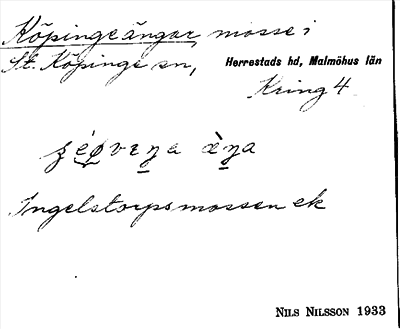 Köpingeängar, mosse i
St. Köpinge sn, Herrestads hd, Malmöhus län
Kring 4
Ingelstorpsmossen ek
NILS NILSSON 1933